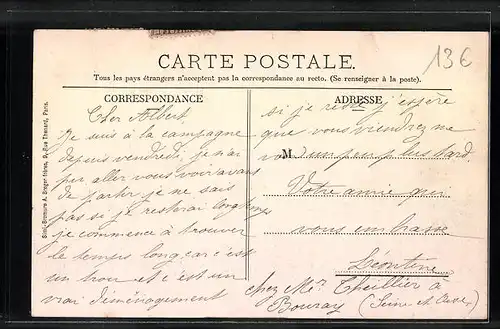 CARTE POSTALE.
13€
Tous les pays étrangers n'acceptent pas la correspondance au recto. (Se renseigner à la poste).
CORRESPONDANCE
Cher Albert,
Je suis à la campagne
depuis vendredi, je n'ai
pu aller vous voir avant
de partir, je ne sais
pas si je resterai longtemps
je commence à trouver
le temps long, car c'est
un trou et c'est un
vrai déménagement
ADRESSE
si je reste j'espère
que vous viendrez me
voir un peu plus tard.
M
Votre amie qui
vous embrasse
Léontine
chez Mr Theillier à
Bouray (Seine-et-Oise)
Simi-Bromure A. Breger frères, 9, Rue Thénard, Paris.